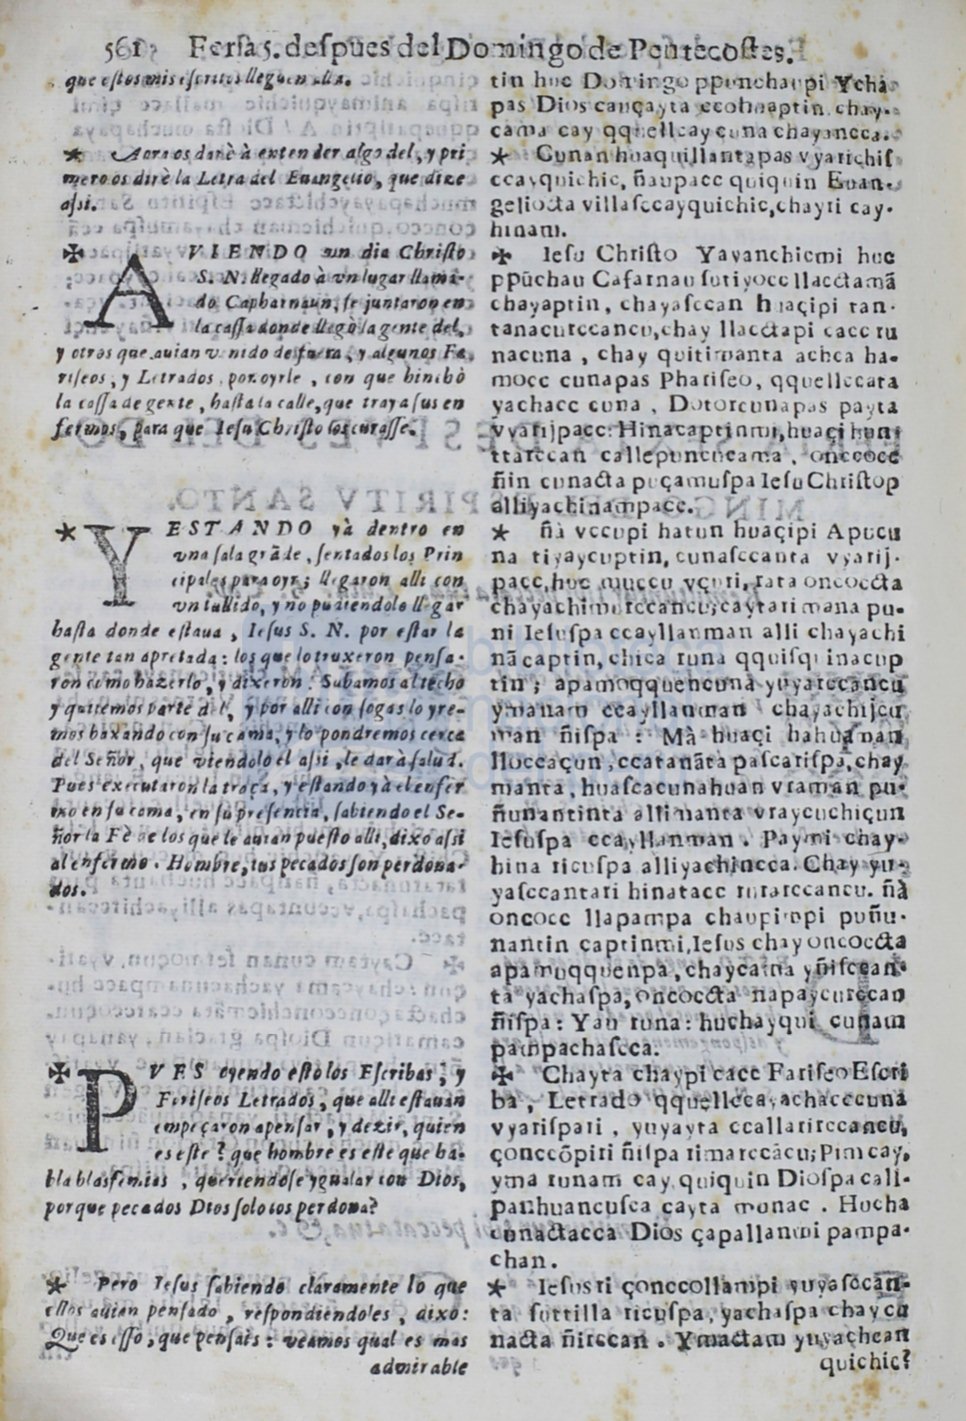 561 Feria 5. despues del Domingo de Pentecostes.
que estos mis escritos lleguen
✶ Aora os darè à entender algo del, y pri
mero os dirè la Letra del Euangelio, que dize
assi.
✠ AVIENDO vn dia Christo
S. N. llegado à vn lugar llama-
do Capharnaun, se juntaron en
la cassa donde llegò la gente del,
y otros que auian venido de fuera, y algunos Fa
riseos, y Letrados por oyrle, con que hinchò
la cassa de gente, hasta la calle, que traya sus en
fermos, para que Iesu Christo los curasse.
✶ Y ESTANDO yà dentro en
vna sala grãde, sentados los Prin
cipales para oyr; llegaron alli con
vn tullido, y no pudiendole llegar
hasta donde estaua, Iesus S. N. por estar la
gente tan apretada: los que lo truxeron pensa-
ron como hazerlo, y dixeron. Subamos al techo
y quitemos parte del, y por alli con sogas lo yre-
mos baxando con su cama, y lo pondremos cerca
del Señor, que viendolo el assi, le darà salud.
Pues executaron la traça, y estando yà el enfer
mo en su cama, en su presencia, sabiendo el Se-
ñor la Fè de los que le auian puesto alli, dixo assi
al enfermo. Hombre, tus pecados son perdona-
dos.
✠ PVES oyendo esto los Escribas, y
Fariseos Letrados, que alli estauan
empeçaron a pensar, y dezir, quien
es este? que hombre es este que ha-
bla blasfemias, queriendose ygualar con Dios,
porque pecados Dios solo los perdona?
✶ Pero Iesus sabiendo claramente lo que
ellos auian pensado, respondiendoles, dixo:
Que es esso, que pensais: veamos qual es mas
admirable
tin huc Domingo ppunchaupi Ychà
pas Dios cauçayta ccohuaptin chay-
cama cay qquellcaycuna chayancca.
✶ Cunan huaquillantapas vyarichis
ccayquichic, ñaupacc quiquin Euan-
geliocta villasccayquichic, chayri cay-
hinam.
✠ Iesu Christo Yayanchicmi huc
ppũchau Cafarnau sutiyocc llacctamã
chayaptin, chayasccan huaçipi tan-
tanacurccancu, chay llacctapi cacc ru
nacuna, chay quitimanta achca ha-
mocc cunapas Phariseo, qquellccata
yachacc cuna, Dotorcunapas payta
vyarijpacc: Hinacaptinmi, huaçi hun
ttarccan callepuncucama, onccocc
ñin cunacta puçamuspa Iesu Christop
alliyachinampacc.
✶ ñà vccupi hatun huaçipi Apucu
na tiyaycuptin, cunasccanta vyarij-
pacc, huc çuti, rata onccoccta
chayachimurccancu, caytari mana pu-
ni Iesuspa ccayllanman alli chayachi
nã captin, chica runa qquisqui inacup
tin; apamoqquencuna yuyarccancu
ymanam ccayllanman chayachijcu
man ñispa: Mà huaçi
lloccaçun, ccatanãta pascarispa, chay
manta, huascacunahuan vraman pu-
ñunantinta allimanta vraycuchiçun
Iesuspa ccayllanman. Paymi chay-
hina ricuspa alliyachincca. Chay yu-
yasccantari hinatacc rurarccancu. ñà
oncocc llapampa chaupimpi puñu-
nantin captinmi, Iesus chay oncoccta
apamuqquenpa, chaycama yñisccan-
ta yachaspa, oncoccta napaycurccan
ñispa: Yau runa: huchayqui cunam
pampachascca.
✠ Chayta chaypi cacc Fariseo Escri
ba, Letrado qquellccayachacccuna
vyarispari, yuyayta ccallarirccancu,
çonccõpiri ñispa rimarccãcu; Pim cay,
yma runam cay, quiquin Diospa cali-
panhuancusca çayta monac. Hucha
cunactacca Dios çapallanmi pampa-
chan.
✶ Iesusri çonccollampi yuyasccan-
ta suttilla ricuspa, yachaspa chaycu
nacta ñirccan. Ymactam yuyachcan
quichic?